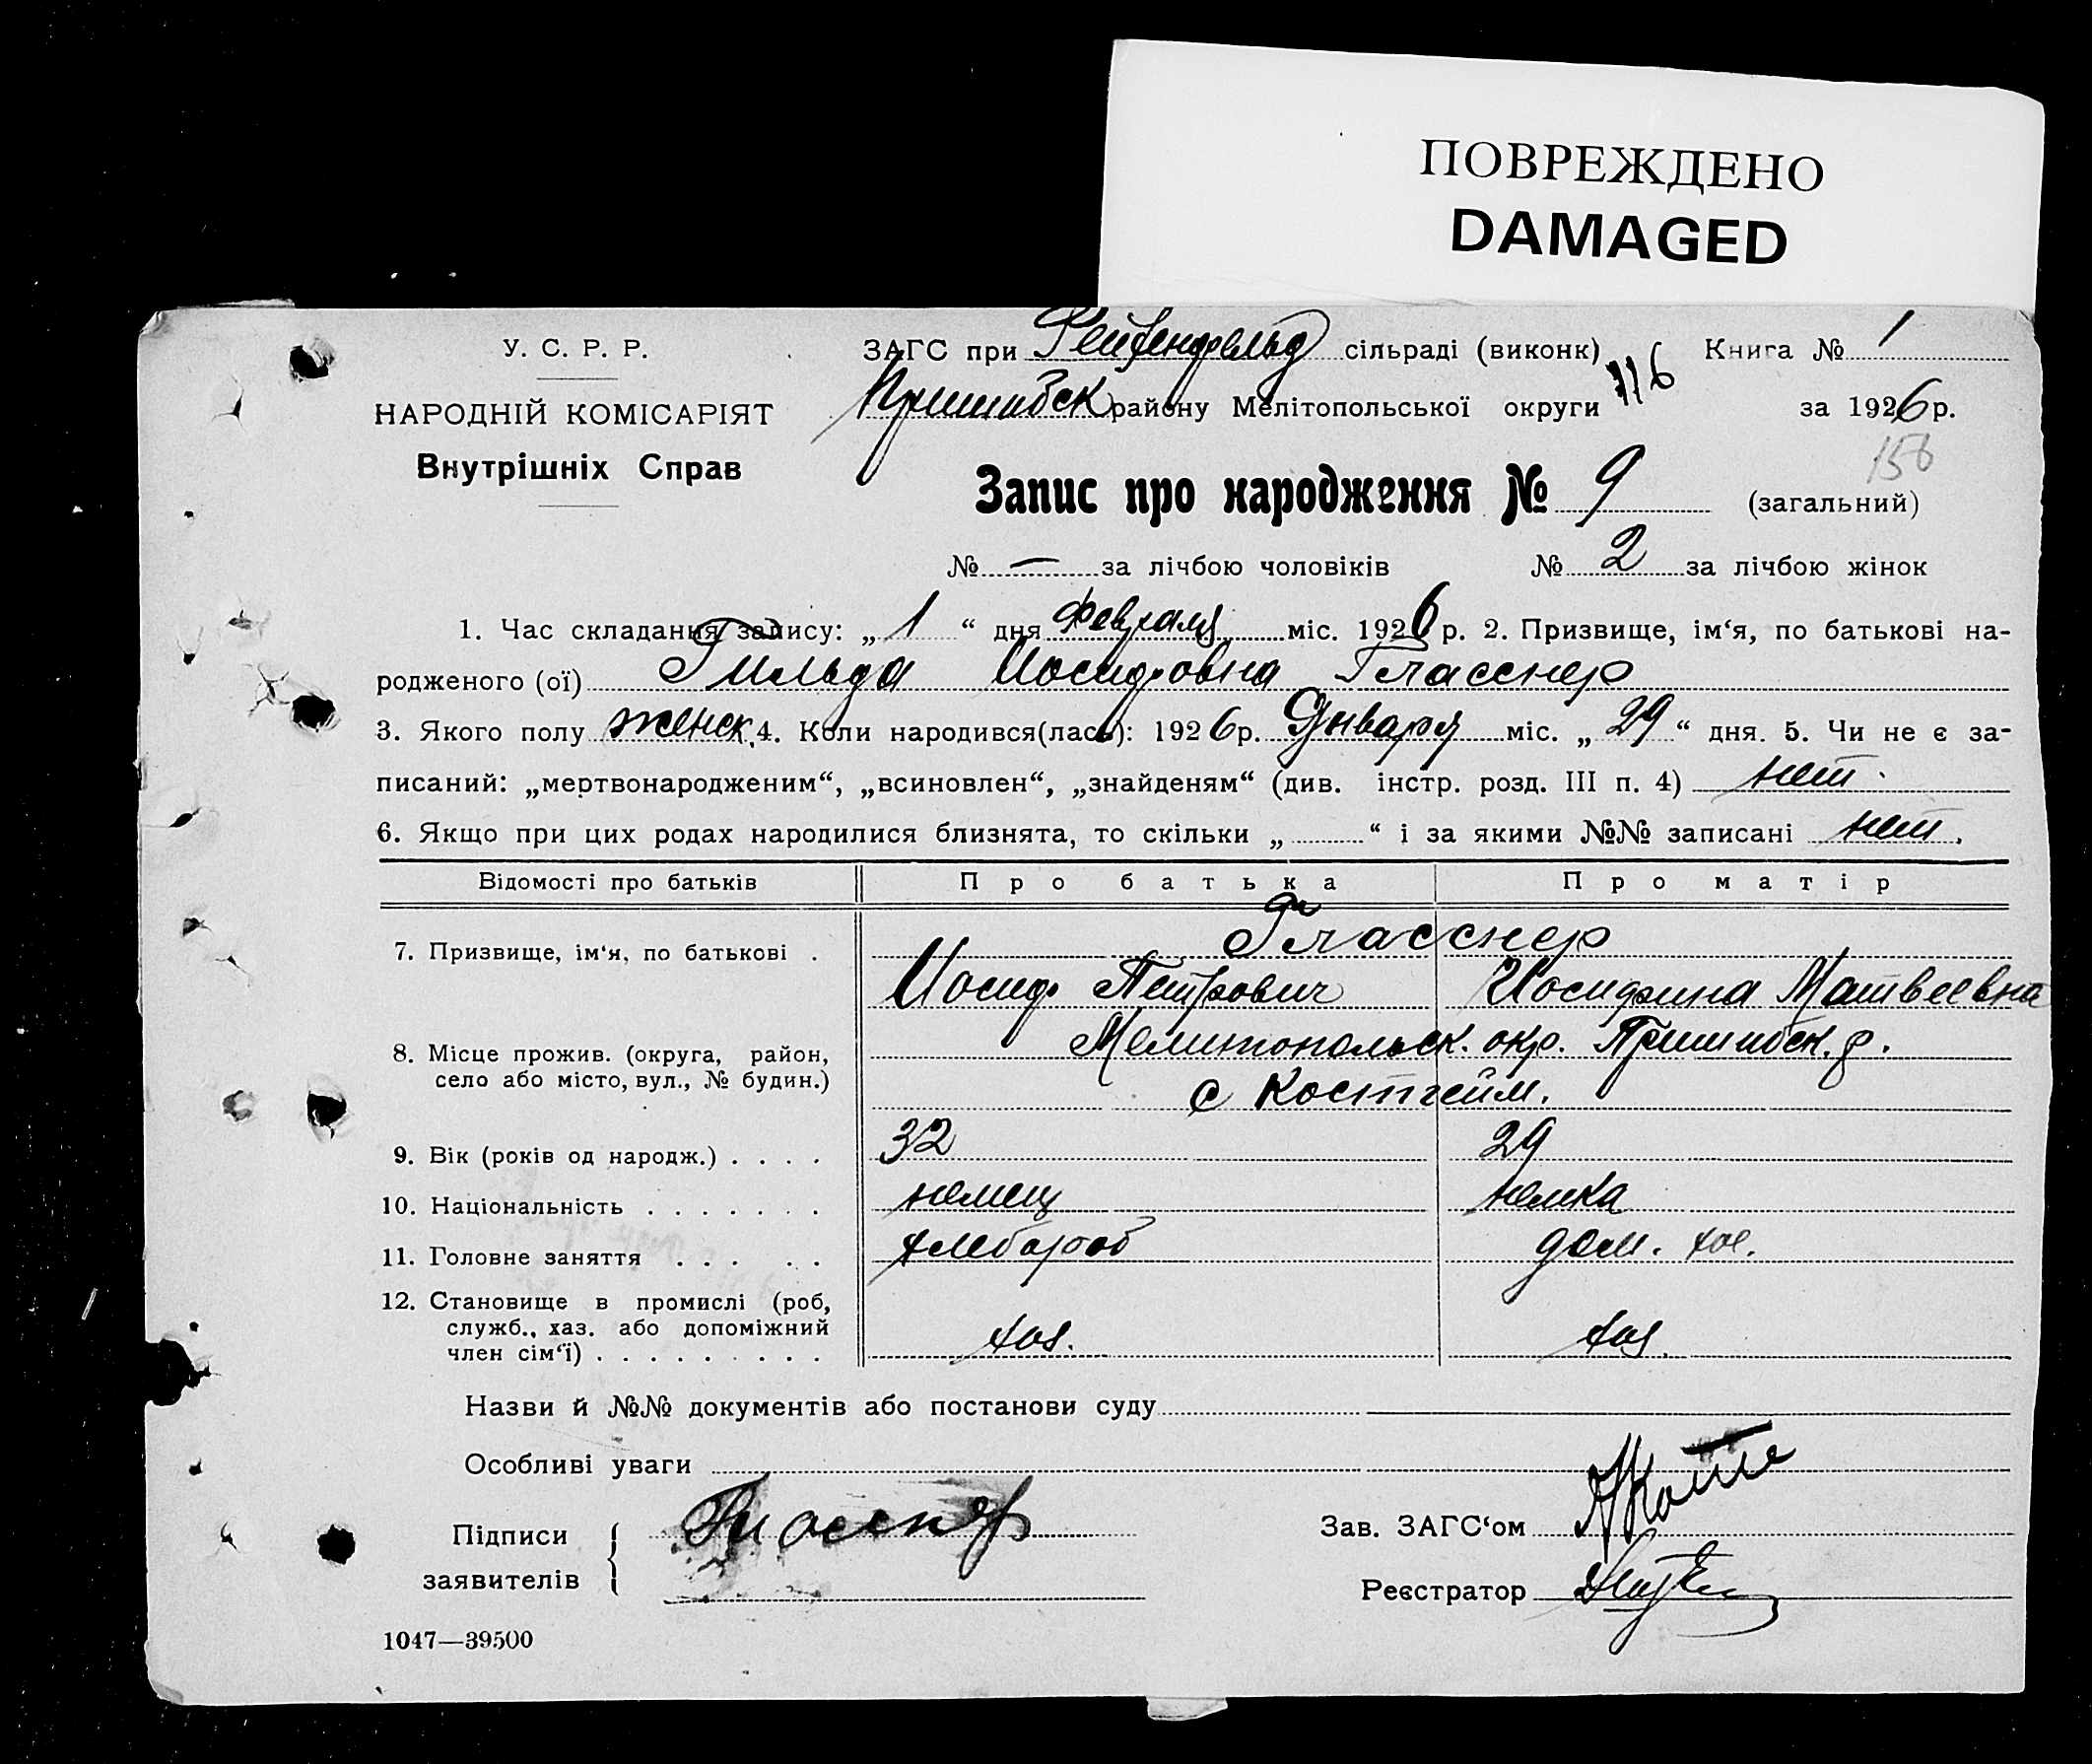 ПОВРЕЖДЕНО
DAMAGED
У. С. Р. Р.
НАРОДНІЙ КОМІСАРІЯТ
Внутрішніх Справ
ЗАГС при Рейхенфельд сільраді (виконк) Книга № 1
Пришибск району Мелітопольської округи 116 за 1926 р.
156
Запис про народження № 9 (загальний)
№ — за лічбою чоловіків № 2 за лічбою жінок
1. Час складання запису: „ 1 “ дня Февраля міс. 1926 р. 2. Призвище, ім‘я, по батькові на-
родженого (ої) Гильда Иосифовна Гласснер
3. Якого полу женск. 4. Коли народився(лась): 1926 р. Января міс. „ 29 “ дня. 5. Чи не є за-
писаний: „мертвонародженим“, „всиновлен“, „знайденям“ (див. інстр. розд. III п. 4) нет.
6. Якщо при цих родах народилися близнята, то скільки „ “ і за якими №№ записані нет.
Відомості про батьків Про батька Про матір
7. Призвище, ім‘я, по батькові . Гласснер
Иосиф Петрович Иосифина Матвеевна
8. Місце прожив. (округа, район, село або місто, вул., № будин.) Мелитопольск. окр. Пришибск. р.
с Костгейм.
9. Вік (років од народж.) . . . . 32 29
10. Національність . . . . . . . немец немка
11. Головне заняття . . . . . хлебороб дом. хоз.
12. Становище в промислі (роб,
служб., хаз. або допоміжний
член сім‘ї) . . . . . . . . . хоз. хоз.
Назви й №№ документів або постанови суду
Особливі уваги
Підписи
заявителів
Гласснер
Зав. ЗАГС‘ом
Реєстратор
1047—39500